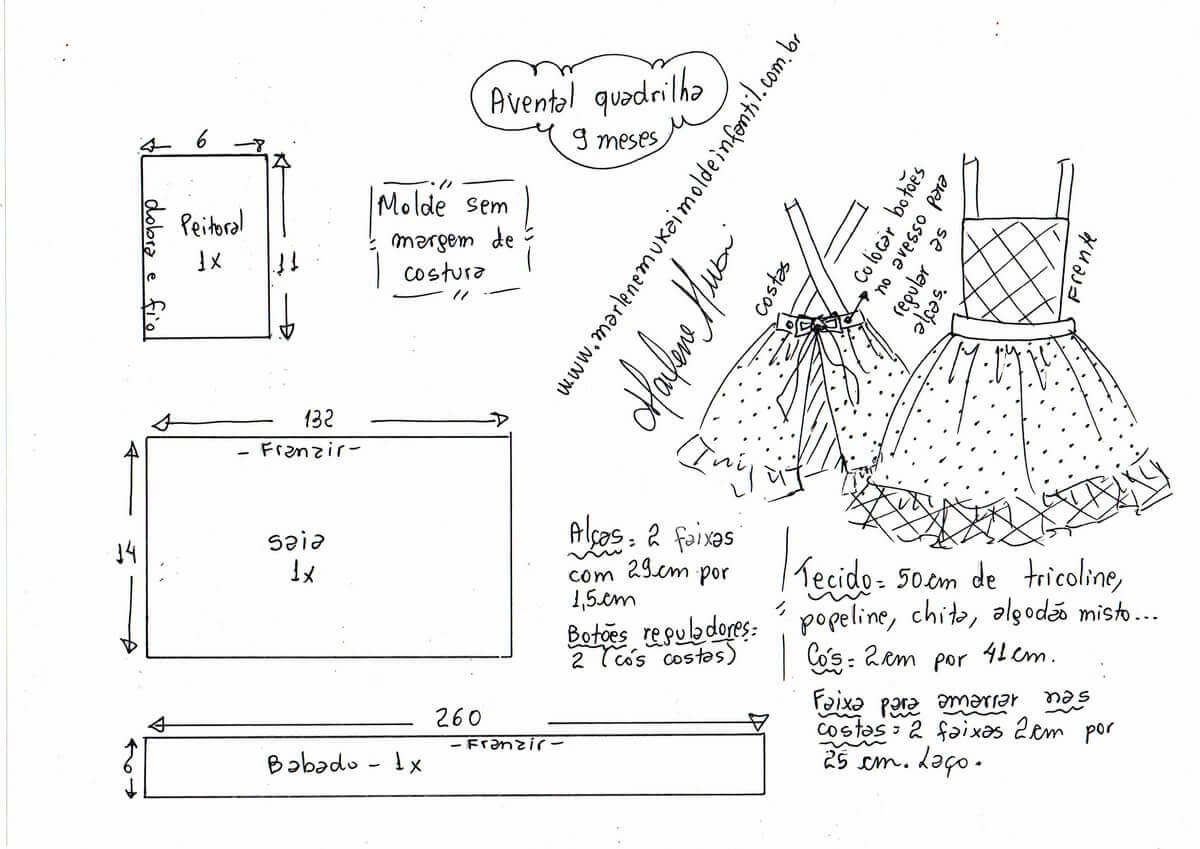 Avental quadrilha
9 meses
www.marlenemukaimoldeinfantil.com.br
Marlene Mukai
6
dobra e fio
Peitoral
1x
11
Molde sem
margem de
costura
costas
colocar botões
no avesso para
regular as
alças.
Frente
132
- Franzir -
14
saia
1x
Alças = 2 faixas
com 29cm por
1,5cm
Botões reguladores =
2 (cós costas)
Tecido = 50cm de tricoline,
popeline, chita, algodão misto...
Cós = 2cm por 41cm.
Faixa para amarrar nas
costas = 2 faixas 2cm por
25cm. Laço.
260
- Franzir -
6
Babado - 1x